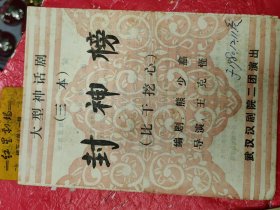 大型神话剧
(三本)
封神榜
(比干挖心)
编剧 熊少
导演 王克
武汉汉剧院二团演出